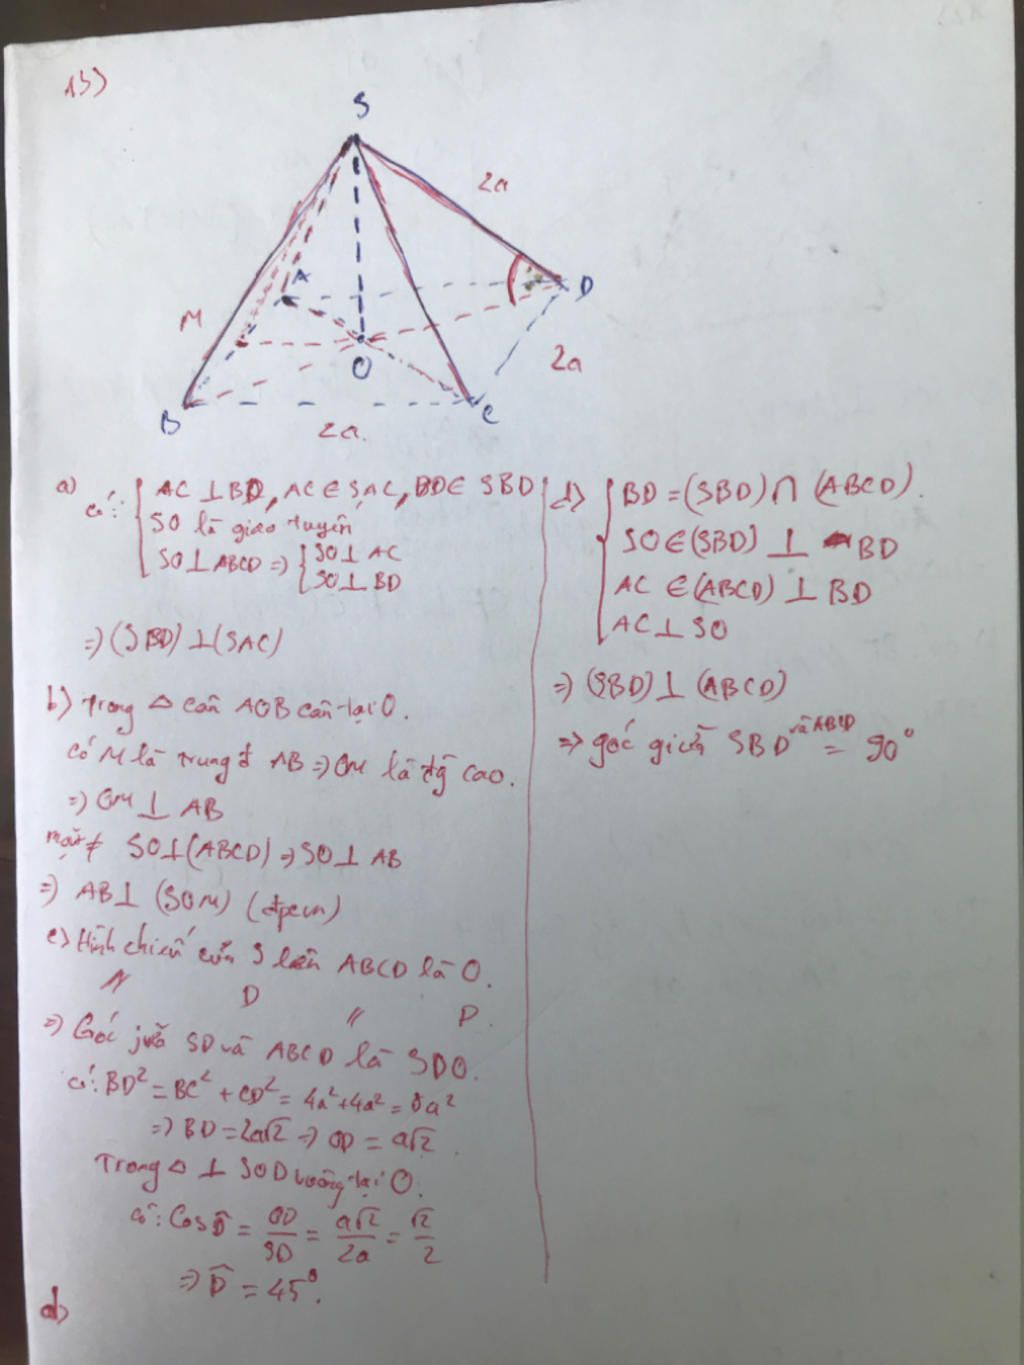 13)
S
2a
A
D
M
O
2a
B
C
2a.
a) có: AC ⊥ BD, AC ∈ SAC, BD ∈ SBD
SO là giao tuyến
SO ⊥ ABCD => { SO ⊥ AC
SO ⊥ BD
=> (SBD) ⊥ (SAC)
b) Trong △ cân AOB cân tại O.
có M là trung đ AB => OM là đg cao.
=> OM ⊥ AB
mặt ≠ SO ⊥ (ABCD) => SO ⊥ AB
=> AB ⊥ (SOM) (đpcm)
c) Hình chiếu của S lên ABCD là O.
〃 D 〃 D.
=> Góc giữa SD và ABCD là SDO.
có: BD² = BC² + CD² = 4a² + 4a² = 8a²
=> BD = 2a√2 => OD = a√2.
Trong △ ⊥ SOD vuông tại O.
có: Cos D̂ = OD/SD = a√2/2a = √2/2
=> D̂ = 45°.
d)
d) { BD = (SBD) ∩ (ABCD).
SO ∈ (SBD) ⊥ BD
AC ∈ (ABCD) ⊥ BD
AC ⊥ SO
=> (SBD) ⊥ (ABCD)
=> góc giữa SBD và ABCD = 90°